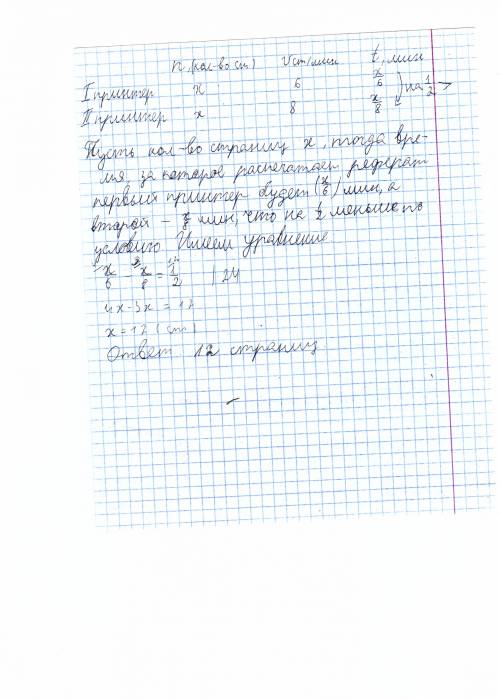 n,(кол-во ст) Vст/мин t, мин
I принтер x 6 x/6 } на 1/2 >
II принтер x 8 x/8
Пусть кол-во страниц x, тогда вре-
мя, за которое распечатает реферат
первый принтер будет (x/6) мин, а
второй – x/8 мин, что на 1/2 меньше по
условию Имеем уравнение
x/6 - x/8 = 1/2 | 24
4x-3x = 12
x = 12 (ст)
Ответ 12 страниц